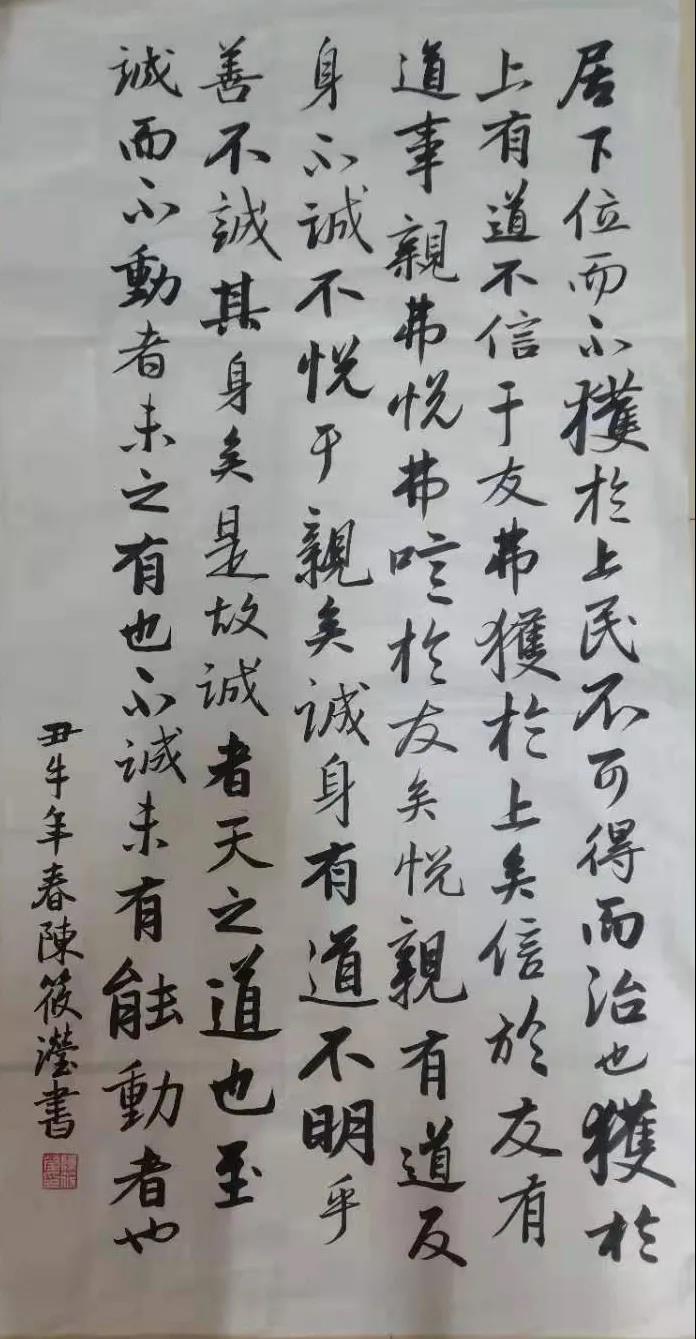 居下位而不獲於上民不可得而治也獲於
上有道不信于友弗獲於上矣信於友有
道事親弗悅弗信於友矣悅親有道反
身不誠不悅于親矣誠身有道不明乎
善不誠其身矣是故誠者天之道也至
誠而不動者未之有也不誠未有能動者也
丑牛年春陳筱瀅書